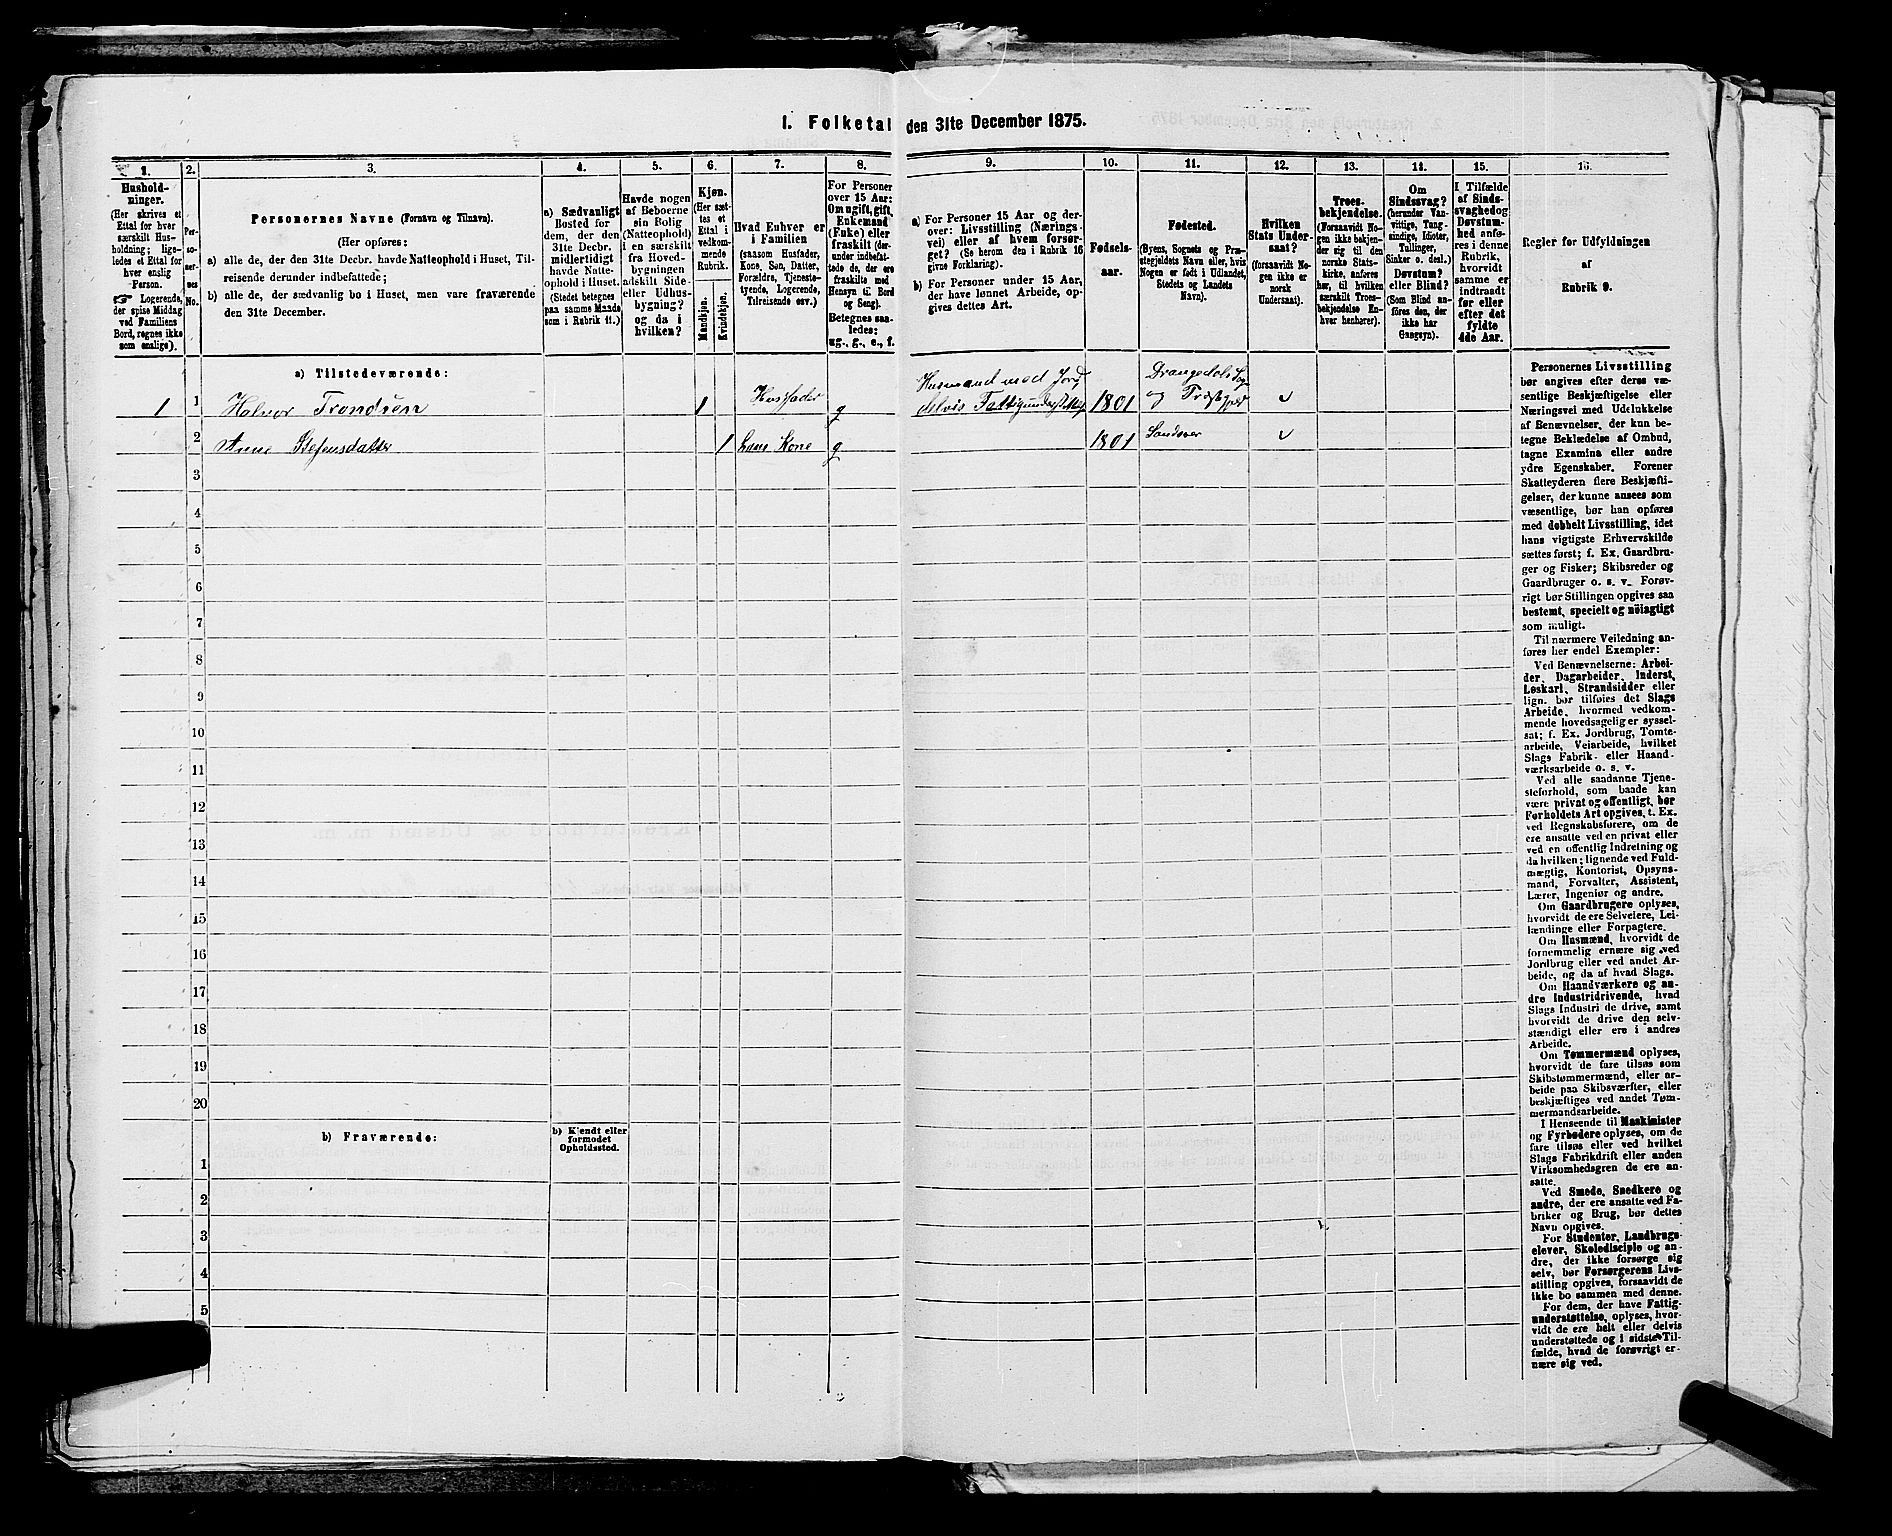 I. Folketal den 31te December 1875.
1. 2. 3. 4. 5. 6. 7. 8. 9. 10. 11. 12. 13. 14. 15. 16.
Hushold-
ninger.
(Her skrives et
Ettal for hver
særskilt Hus-
holdning; lige-
ledes et Ettal for
hver enslig
Person.
☞ Logerende,
der spise Middag
ved Familiens
Bord, regnes ikke
som enslige).
Per-
so-
ner-
nes
No.
Personernes Navne (Fornavn og Tilnavn).
(Her opføres:
a) alle de, der den 31te Decbr. havde Natteophold i Huset, Til-
reisende derunder indbefattede;
b) alle de, der sædvanlig bo i Huset, men vare fraværende
den 31te December.
a) Sædvanligt
Bosted for
dem, der den
31te Decbr.
midlertidigt
havde Natte-
ophold i Huset.
(Stedet betegnes
paa samme Maade
som i Rubrik 11.)
Havde nogen
af Beboerne
sin Bolig
(Natteophold)
i en særskilt
fra Hoved-
bygningen
adskilt Side-
eller Udhus-
bygning?
og da i
hvilken?
Kjøn.
(Her sæt-
tes et
Ettal i
vedkom-
mende
Rubrik.
Mandkjøn.
Kvindekjøn.
Hvad Enhver er
i Familien
(saasom Husfader,
Kone, Søn, Datter,
Forældre, Tjeneste-
tyende, Logerende,
Tilreisende osv.)
For Personer
over 15 Aar:
Om ugift, gift,
Enkemand
(Enke) eller
fraskilt (der-
under indbefat-
tede de, der ere
fraskilte med
Hensyn til Bord
og Seng).
Betegnes saa-
ledes:
ug., g., e., f.
a) For Personer 15 Aar og der-
over: Livsstilling (Nærings-
vei) eller af hvem forsør-
get? (Se herom den i Rubrik 16
givne Forklaring).
b) For Personer under 15 Aar,
der have lønnet Arbeide, op-
gives dettes Art.
Fødsels-
aar.
Fødested.
(Byens, Sognets og Præ-
stegjeldets Navn eller, hvis
Nogen er født i Udlandet,
Stedets og Landets
Navn).
Hvilken
Stats Under-
saat?
(forsaavidt No-
gen ikke er
norsk
Undersaat).
Troes-
bekjendelse.
(Forsaavidt No-
gen ikke bekjen-
der sig til den
norske Stats-
kirke, anføres
her, til hvilken
særskilt Troes-
bekjendelse En-
hver henhører).
Om
Sindssvag?
(herunder Van-
vittige, Tung-
sindige, Idioter,
Tullinger,
Sinker o. desl.)
Døvstum?
eller Blind?
(Som Blind an-
føres den, der
ikke har
Gangsyn).
I Tilfælde
af Sinds-
svaghed og
Døvstum-
hed anfø-
res i denne
Rubrik,
hvorvidt
samme er
indtraadt
før eller
efter det
fyldte
4de Aar.
Regler for Udfyldningen
af
Rubrik 9.
a) Tilstedeværende:
Husmand med Jord, Drangedals Sog
1 1 Halvor Trondsen 1 Husfader g delvis Fattigunderstøttet 1801 og Præstgjeld
2 Anne Stefensdatter 1 hans Kone g 1801 Sandøver
3
4
5
6
7
8
9
10
11
12
13
14
15
16
17
18
19
20
b) Fraværende:
b) Kjendt eller
formodet
Opholdssted.
1
2
3
4
5
Personernes Livsstilling
bør angives efter deres væ-
sentlige Beskjæftigelse eller
Næringsvei med Udelukkelse
af Benævnelser, der kun be-
tegne Beklædelse af Ombud,
tagne Examina eller andre
ydre Egenskaber. Forener
Skatteyderen flere Beskjæfti-
gelser, der kunne ansees som
væsentlige, bør han opføres
med dobbelt Livsstilling, idet
hans vigtigste Erhvervskilde
sættes først; f. Ex. Gaardbru-
ger og Fisker; Skibsreder og
Gaardbruger o. s. v. Forøv-
rigt bør Stillingen opgives saa
bestemt, specielt og nöiagtigt
som muligt.
Til nærmere Veiledning an-
føres her endel Exempler:
Ved Benævnelserne: Arbei-
der, Dagarbeider, Inderst,
Løskarl, Strandsidder eller
lign. bør tilføies det Slags
Arbeide, hvormed vedkom-
mende hovedsagelig er syssel-
sat; f. Ex. Jordbrug, Tomte-
arbeide, Veiarbeide, hvilket
Slags Fabrik- eller Haand-
værksarbeide o. s. v.
Ved alle saadanne Tjene-
steforhold, som baade kan
være privat og offentligt, bør
Forholdets Art opgives, t. Ex.
ved Regnskabsførere, om de
ere ansatte ved en privat eller
ved en offentlig Indretning og
da hvilken; lignende ved Fuld-
mægtig, Kontorist, Opsyns-
mand, Forvalter, Assistent,
Lærer, Ingeniør og andre.
Om Gaardbrugere oplyses,
hvorvidt de ere Selveiere, Lei-
lændinge eller Forpagtere.
Om Husmænd, hvorvidt de
fornemmelig ernære sig ved
Jordbrug eller ved andet Ar-
beide, og da af hvad Slags.
Om Haandværkere og an-
dre Industridrivende, hvad
Slags Industri de drive, samt
hvorvidt de drive den selv-
stændigt eller ere i andres
Arbeide.
Om Tømmermænd oplyses,
hvorvidt de fare tilsøs som
Skibstømmermænd, eller ar-
beide paa Skibsværfter, eller
beskjæftiges ved andet Tøm-
mermandsarbeide.
I Henseende til Maskinister
og Fyrbødere oplyses, om de
fare tilsøs eller ved hvilket
Slags Fabrikdrift eller anden
Virksomhedsgren de ere an-
satte.
Ved Smede, Snedkere og
andre, der ere ansatte ved Fa-
briker og Brug, bør dettes
Navn opgives.
For Studenter, Landbrugs-
elever, Skoledisciple og an-
dre, der ikke forsørge sig
selv, bør Forsørgerens Livs-
stilling opgives, forsaavidt de
ikke bo sammen med denne.
For dem, der have Fattig-
understøttelse, oplyses, hvor-
vidt de ere helt eller delvis
understøttede og i sidste Til-
fælde, hvad de forøvrigt er-
nære sig ved.